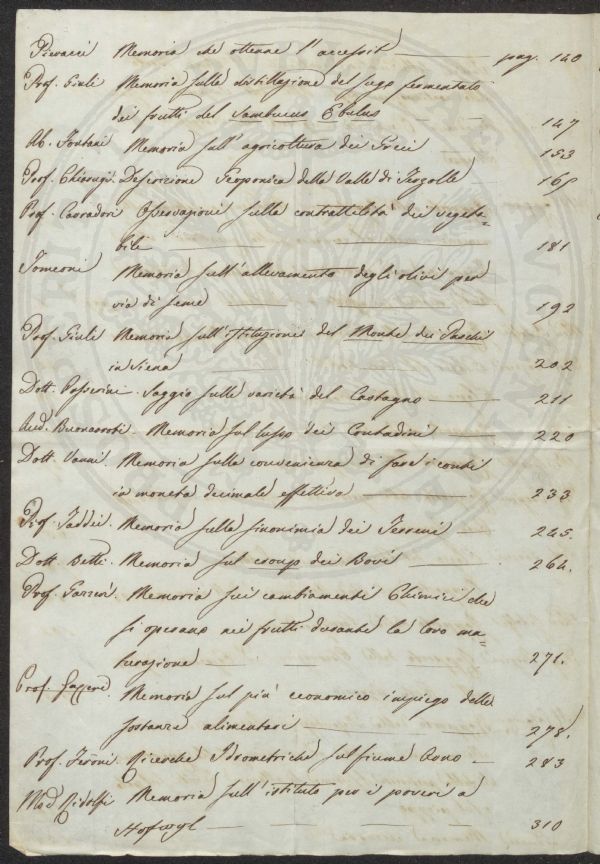 Pieracci Memoria che ottenne l'accessit pag. 140
Prof. Giuli Memoria sulla distillazione del sugo fermentato
dei frutti del Sambucus Ebulus 147
Ab. Fontani Memoria sull'agricoltura dei Greci 153
Prof. Chiarugi Descrizione Geoponica della Valle di Terzolle 165
Prof. Carradori Osservazioni sulla contrattilità dei vegeta=
bili 181
Tomeoni Memoria sull'allevamento degli olivi per
via di seme 192
Prof. Giuli Memoria sull'istituzione del Monte dei Paschi
in Siena 202
Dott. Passerini Saggio sulle varietà del Castagno 211
Aud. Buonarroti Memoria sul lusso dei Contadini 220
Dott. Vanni Memoria sulla convenienza di fare i conti
in moneta decimale effettiva 233
Prof. Taddei Memoria sulla sinonimia dei Terreni 245.
Dott. Betti Memoria sul croup dei Bovi 264.
Prof. Gazzeri Memoria sui cambiamenti Chimici che
si operano nei frutti durante la loro ma=
turazione 271.
Prof. Gazzeri Memoria sul più economico impiego delle
sostanze alimentari 278.
Prof. Ricerche Idrometriche sul fiume Arno 283
Ridolfi Memoria sull'istituto per i poveri a
Hofwyl 310